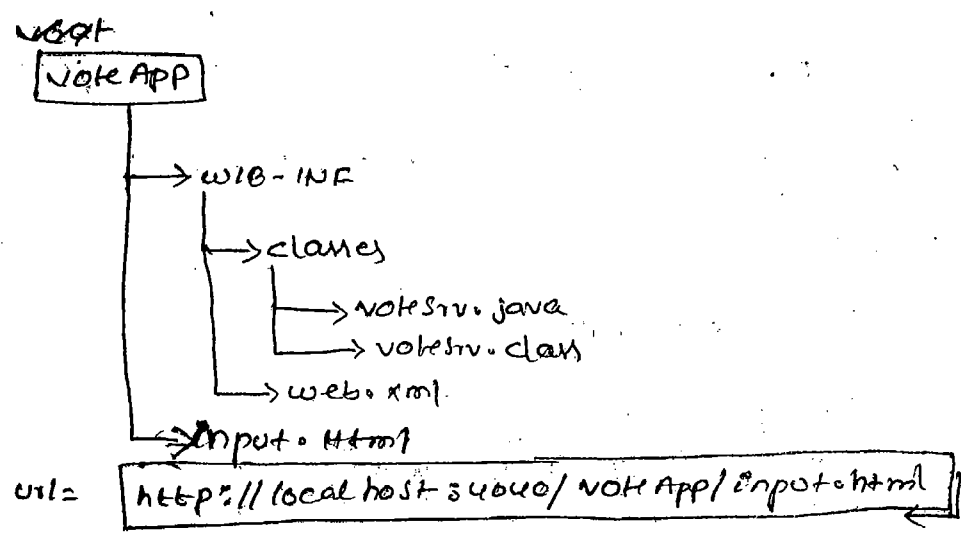 Vote App
WEB-INF
classes
VoteSrv.java
voteSrv.class
web.xml
input.Html
url= http://localhost:4040/VoteApp/input.html